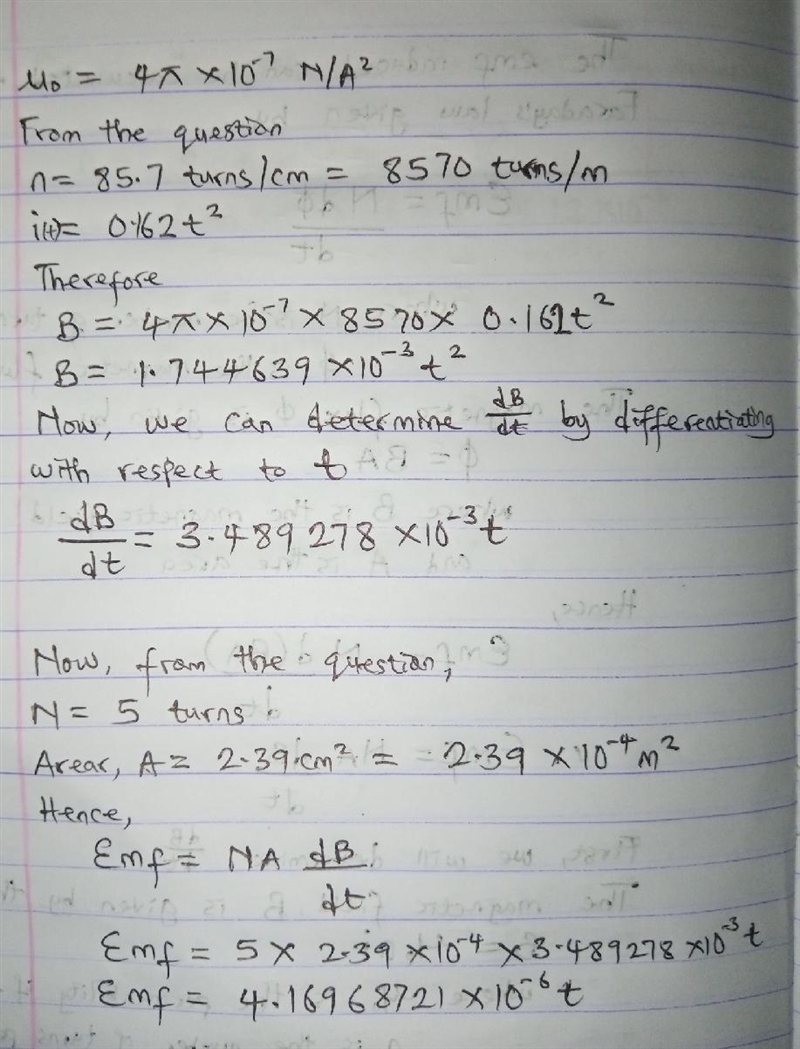 μ₀ = 4π × 10⁻⁷ N/A²
From the question
n = 85.7 turns/cm = 8570 turns/m
i(t) = 0.162t²
Therefore
B = 4π × 10⁻⁷ × 8570 × 0.162t²
B = 1.744639 × 10⁻³ t²
Now, we can determine dB/dt by differentiating
with respect to t
dB/dt = 3.489278 × 10⁻³ t
Now, from the question,
N = 5 turns
Arear, A = 2.39 cm² = 2.39 × 10⁻⁴ m²
Hence,
Emf = NA dB/dt
Emf = 5 × 2.39 × 10⁻⁴ × 3.489278 × 10⁻³ t
Emf = 4.16968721 × 10⁻⁶ t